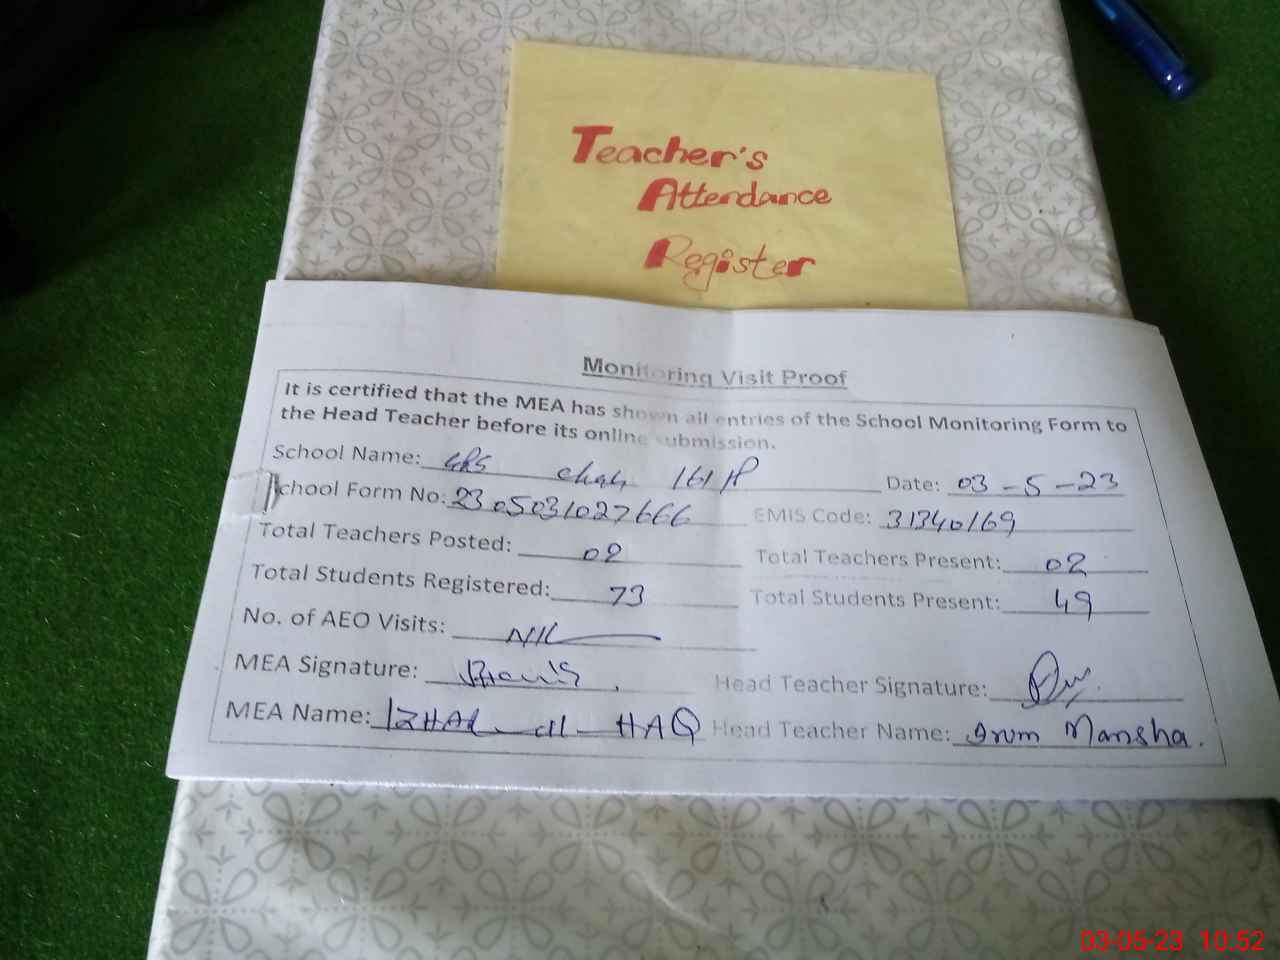 Teacher's
Attendance
Register
Monitoring Visit Proof
It is certified that the MEA has shown all entries of the School Monitoring Form to
the Head Teacher before its online submission.
School Name: GPS Chak 161 P Date: 03-5-23
School Form No: 2305031027666 EMIS Code: 31340169
Total Teachers Posted: 02 Total Teachers Present: 02
Total Students Registered: 73 Total Students Present: 49
No. of AEO Visits: NIL
MEA Signature: Head Teacher Signature:
MEA Name: IZHAR-ul-HAQ Head Teacher Name: Irum Mansha.
03-05-23 10:52